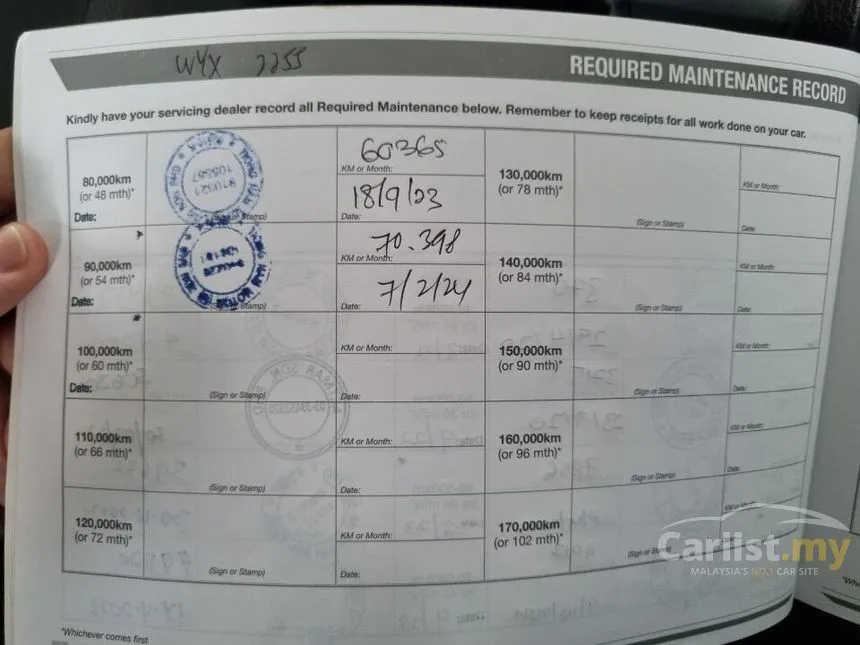 WYX 2255
REQUIRED MAINTENANCE RECORD
Kindly have your servicing dealer record all Required Maintenance below. Remember to keep receipts for all work done on your car.
80,000km
(or 48 mth)*
Date:
(Sign or Stamp)
60365
KM or Month:
18/9/23
Date:
130,000km
(or 78 mth)*
(Sign or Stamp)
KM or Month:
Date:
90,000km
(or 54 mth)*
Date:
Stamp)
70.398
KM or Month:
7/2/24
Date:
140,000km
(or 84 mth)*
(Sign or Stamp)
KM or Month:
Date:
100,000km
(or 60 mth)*
Date:
(Sign or Stamp)
KM or Month:
Date:
150,000km
(or 90 mth)*
(Sign or Stamp)
KM or Month:
Date:
110,000km
(or 66 mth)*
(Sign or Stamp)
KM or Month:
Date:
160,000km
(or 96 mth)*
(Sign or Stamp)
KM or Month:
Date:
120,000km
(or 72 mth)*
(Sign or Stamp)
KM or Month:
Date:
170,000km
(or 102 mth)*
(Sign or
KM or
Carlist.my
MALAYSIA'S NO.1 CAR SITE
*Whichever comes first